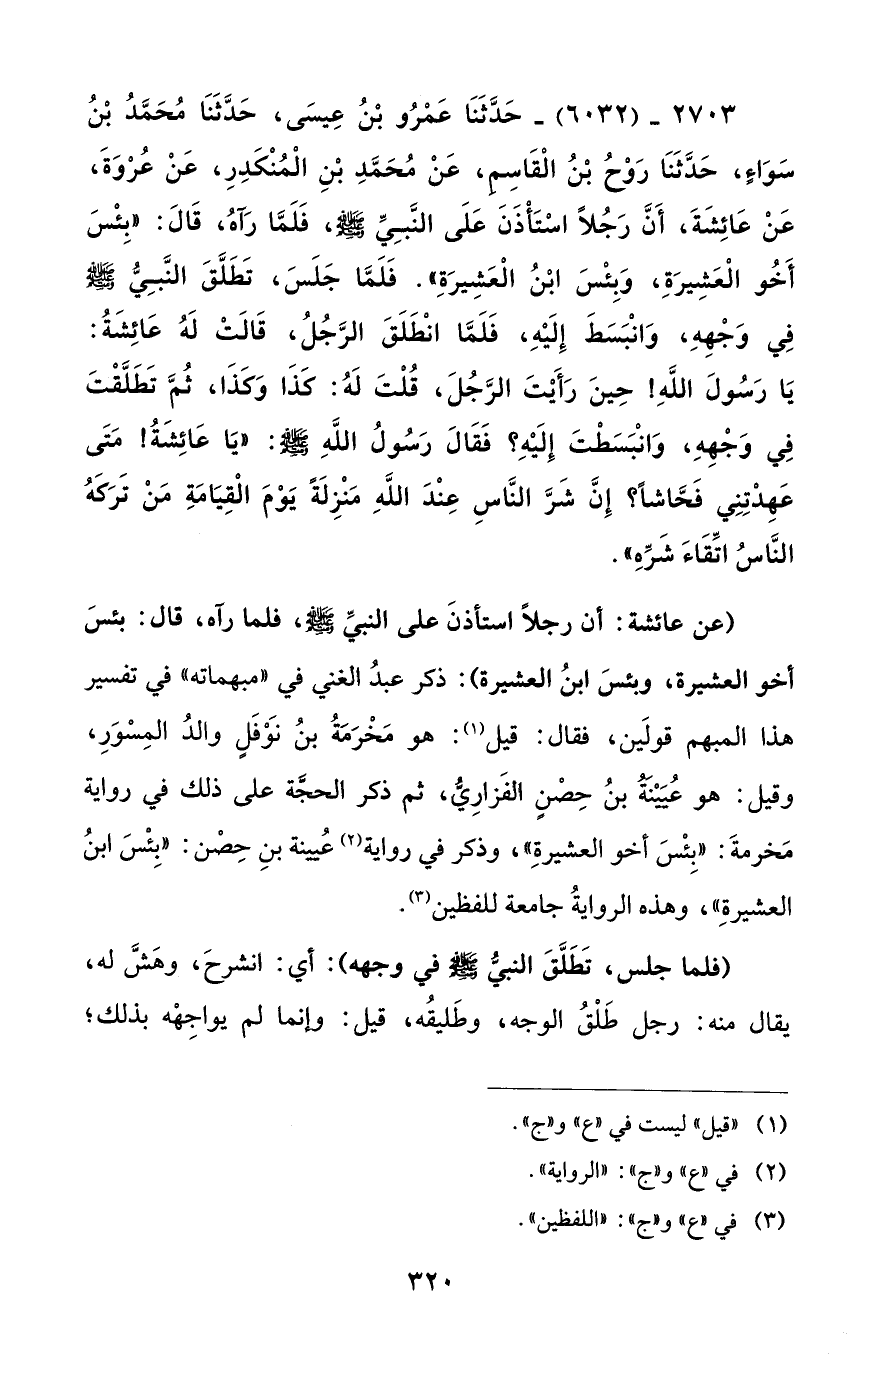 ٢٧٠٣ ـ (٦٠٣٢) ـ حَدَّثَنَا عَمْرُو بْنُ عِيسَى، حَدَّثَنَا مُحَمَّدُ بْنُ
سَوَاءٍ، حَدَّثَنَا رَوْحُ بْنُ الْقَاسِمِ، عَنْ مُحَمَّدِ بْنِ الْمُنْكَدِرِ، عَنْ عُرْوَةَ،
عَنْ عَائِشَةَ، أَنَّ رَجُلاً اسْتَأْذَنَ عَلَى النَّبِيِّ ﷺ، فَلَمَّا رَآهُ، قَالَ: «بِئْسَ
أَخُو الْعَشِيرَةِ، وَبِئْسَ ابْنُ الْعَشِيرَةِ». فَلَمَّا جَلَسَ، تَطَلَّقَ النَّبِيُّ ﷺ
فِي وَجْهِهِ، وَانْبَسَطَ إِلَيْهِ، فَلَمَّا انْطَلَقَ الرَّجُلُ، قَالَتْ لَهُ عَائِشَةُ:
يَا رَسُولَ اللَّهِ! حِينَ رَأَيْتَ الرَّجُلَ، قُلْتَ لَهُ: كَذَا وَكَذَا، ثُمَّ تَطَلَّقْتَ
فِي وَجْهِهِ، وَانْبَسَطْتَ إِلَيْهِ؟ فَقَالَ رَسُولُ اللَّهِ ﷺ: «يَا عَائِشَةُ! مَتَى
عَهِدْتِنِي فَحَّاشاً؟ إِنَّ شَرَّ النَّاسِ عِنْدَ اللَّهِ مَنْزِلَةً يَوْمَ الْقِيَامَةِ مَنْ تَرَكَهُ
النَّاسُ اتِّقَاءَ شَرِّهِ».
(عن عائشة: أن رجلاً استأذنَ على النبيِّ ﷺ، فلما رآه، قال: بئسَ
أخو العشيرة، وبئسَ ابنُ العشيرة): ذكر عبدُ الغني في «مبهماته» في تفسير
هذا المبهم قولَين، فقال: قيل(١): هو مَخْرَمَةُ بنُ نَوْفَلٍ والدُ المِسْوَرِ،
وقيل: هو عُيَيْنَةُ بنُ حِصْنٍ الفَزاريُّ، ثم ذكر الحجَّة على ذلك في رواية
مَخرمةَ: «بِئْسَ أخو العشيرةِ»، وذكر في رواية(٢) عُيينة بنِ حِصْن: «بِئْسَ ابنُ
العشيرةِ»، وهذه الروايةُ جامعة للفظين(٣).
(فلما جلس، تَطَلَّقَ النبيُّ ﷺ في وجهه): أي: انشرحَ، وهَشَّ له،
يقال منه: رجل طَلْقُ الوجه، وطَليقُه، قيل: وإنما لم يواجِهْه بذلك؛
(١) «قيل» ليست في «ع» و«ج».
(٢) في «ع» و«ج»: «الرواية».
(٣) في «ع» و«ج»: «اللفظين».
٣٢٠